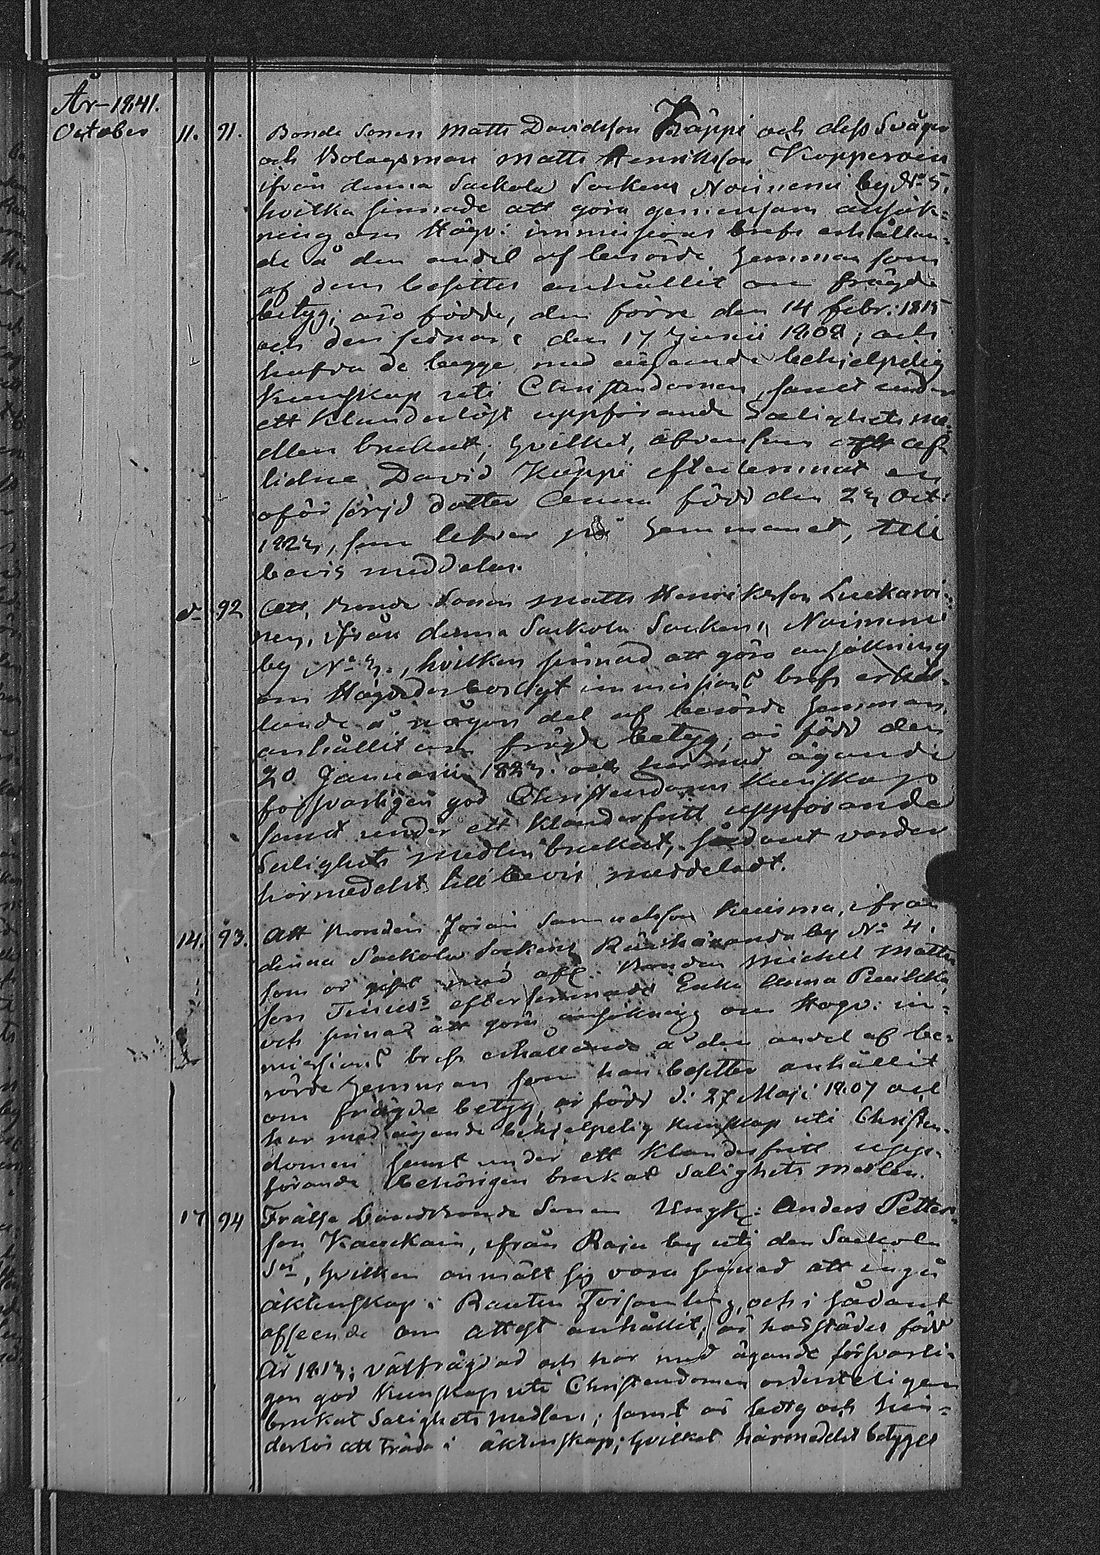 År 1841.
October 11. 91. Bonde Sonen Matts Davidsson Käppi och dess Svåger
och Bolagsman Matts Henriksson Kopperoin
ifrån denna Sackola Sockens Noisniemi by No 5.
hvilka sinnade att göra gemensam ansök-
ning om Högv: immissions brefs erhållan-
de å den andel af berörde hemman som
af dem besittes anhållit om frägde
betyg; äro födde, den förre den 14 febr. 1815
och den sednare den 17 Junii 1808; och
hafva de begge med ägande behjelpelig
kunskap uti Christendomen, samt under
ett klanderlöst uppförande Salighets me-
dlen brukat; hvilket, äfvensom att af-
lidne David Käppi efterlemnat en
oförsörjd dotter Anna född den 23 Oct:
1823, som lefver på hemmanet, till
bevis meddelas.
d. 92 Att Bonde Sonen Matts Henriksson Luukarai-
nen, ifrån denna Sackola Sockens Noisniemi
by No 3., hvilken sinnad att göra ansökning
om Högvederbörligt immissions brefs erhål-
lande å någon del af berörde hemman,
anhållit om frägde betyg, är född den
20 Januarii 1823. och har med ägande
forsvarligen god Christendoms kunskap
samt under ett klanderfritt uppförande
Salighets medlen brukat, sådant varder
härmedelst till bevis meddeladt.
14. 93. Att Bonden Jöran Samuelsson Kuisma, ifrån
denna Sackola Sockens by No 4.
som är gift med afl: Bonden Michel Matts-
son efterlemnade Enka Anna
och sinnad att göra ansökning om Högv: im-
missions brefs erhållande å den andel af be-
rörde hemman som han besitter anhållit
om frägde betyg, är född d: 27 Maji 1807 och
har med ägande behjelpelig kunskap uti Christen-
domen samt under ett klanderfritt upp-
förande behörigen brukat Salighets medlen.
17 94 Frälse Landbonde Sonen Ungk: Anders Petters-
son Kaukain, ifrån Raju by uti den Sackola
Sn, hvilken anmält sig vara sinnad att ingå
äktenskap i Rautus Församling, och i sådant
afseende om attest anhållit, är härstädes född
År 1813; välfrägdad och har med ägande försvarli-
gen god kunskap uti Christendomen ordenteligen
brukat Salighets medlen; samt är ledig och hin-
derlös att träda i äktenskap; hvilket härmedelst betygas